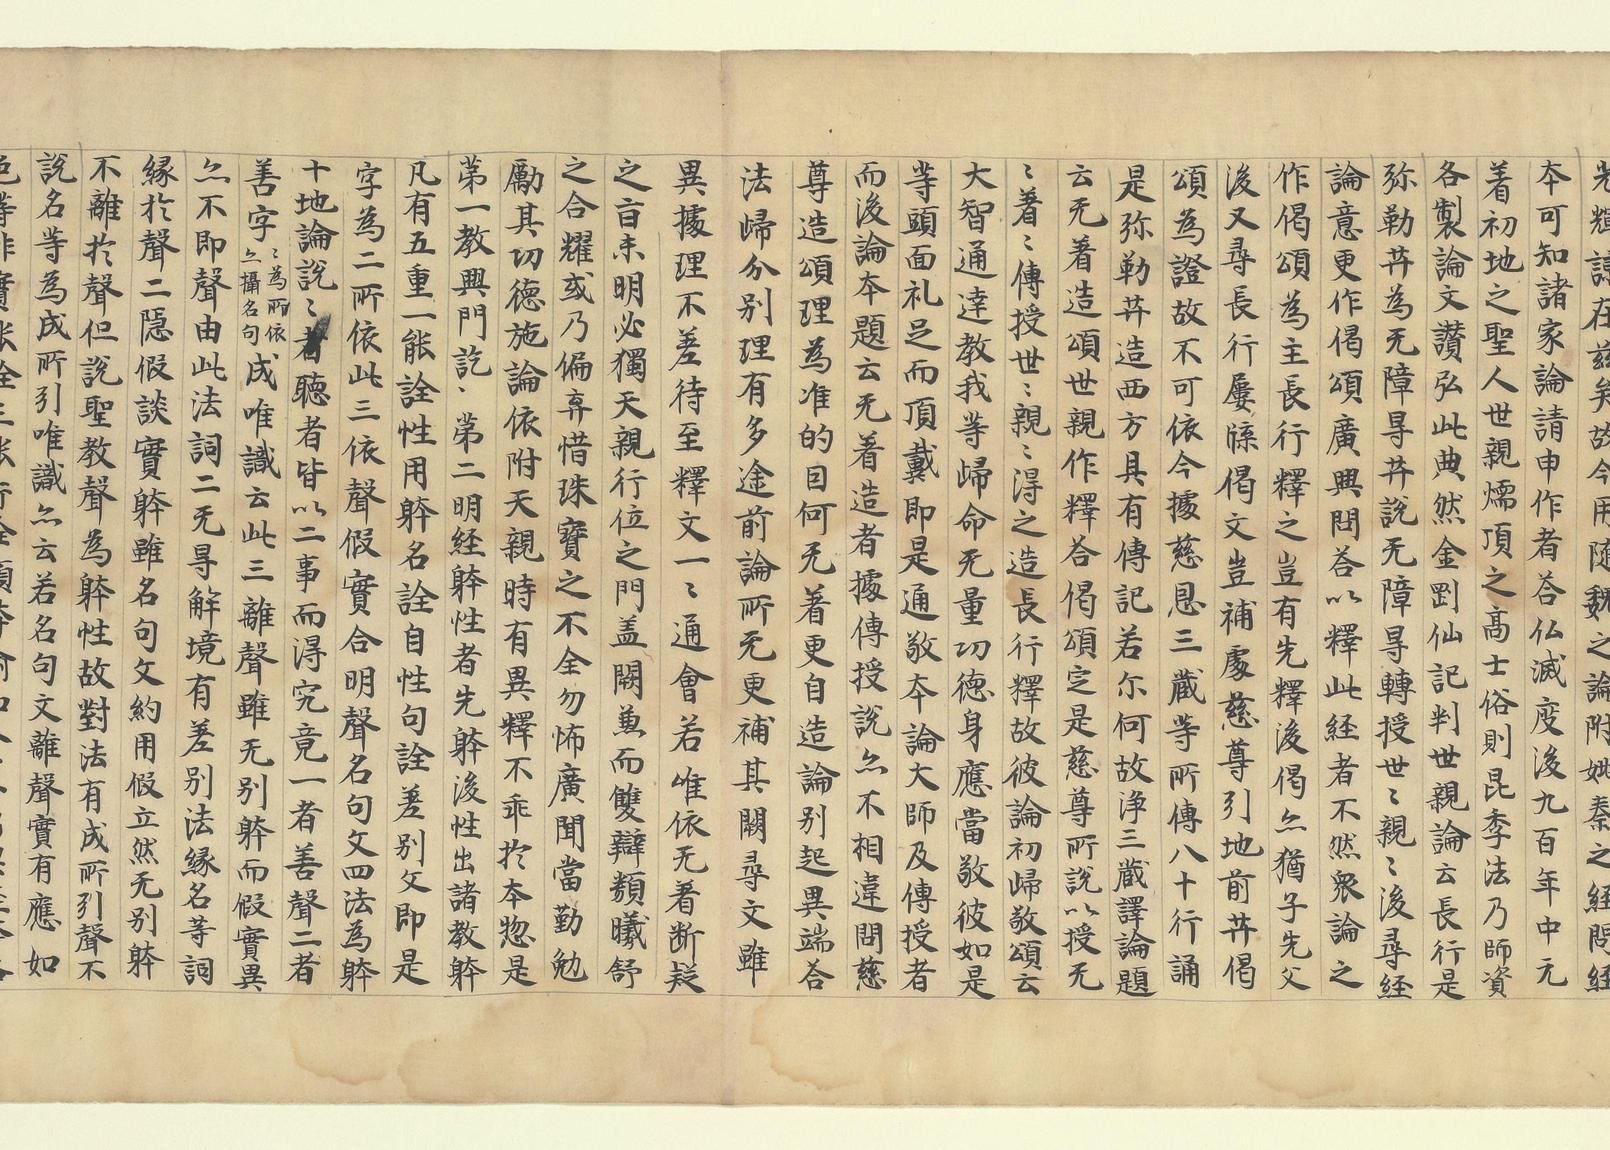 本可知諸家論請申作者荅仏滅度後九百年中元
着初地之聖人世親燸頂之髙士俗則昆季法乃師資
各製論文讚弘此典然金剛仙記判世親論云長行是
弥勒菩為无障㝵菩說无障㝵轉授世〻親〻後尋経
論意更作偈頌廣興問荅以釋此経者不然衆論之
作偈頌為主長行釋之豈有先釋後偈亦猶子先父
後又尋長行屢牒偈文豈補處慈尊引地前菩偈
頌為證故不可依今據慈恩三藏等所傳八十行誦
是弥勒菩造西方具有傳記若尔何故淨三藏譯論題
云无着造頌世親作釋荅偈頌定是慈尊所說以授无
〻著〻傳授世〻親〻得之造長行釋故彼論初歸敬頌云
大智通達教我等歸命无量功德身應當敬彼如是
等頭面礼足而頂戴即是通敬本論大師及傳授者
而後論本題云无着造者據傳授說亦不相違問慈
尊造頌理為准的目何无著更自造論別起異端荅
法歸分別理有多途前論所无更補其闕尋文雖
異據理不差待至釋文一〻通會若唯依无著断疑
之盲未明必獨天親行位之門盖闕兼而雙辯頪曦舒
之合耀或乃偏弃惜珠寶之不全勿怖廣聞當勤勉
勵其功德施論依附天親時有異釋不乖於本惣是
苐一教興門訖、苐二明経躰性者先躰後性出諸教躰
凡有五重一能詮性用躰名詮自性句詮差別文即是
字為二所依此三依聲假實合明聲名句文四法為躰
十地論說〻者聽者皆以二事而得究竟一者善聲二者
善字〻為所依亦攝名句成唯識云此三離聲雖无別躰而假實異
亦不即聲由此法詞二无㝵解境有差別法縁名等詞
縁於聲二隱假談實躰雖名句文約用假立然无別躰
不離於聲但說聖教聲為躰性故對法有成所引聲不
說名等為成所引唯識亦云若名句文離聲實有應如